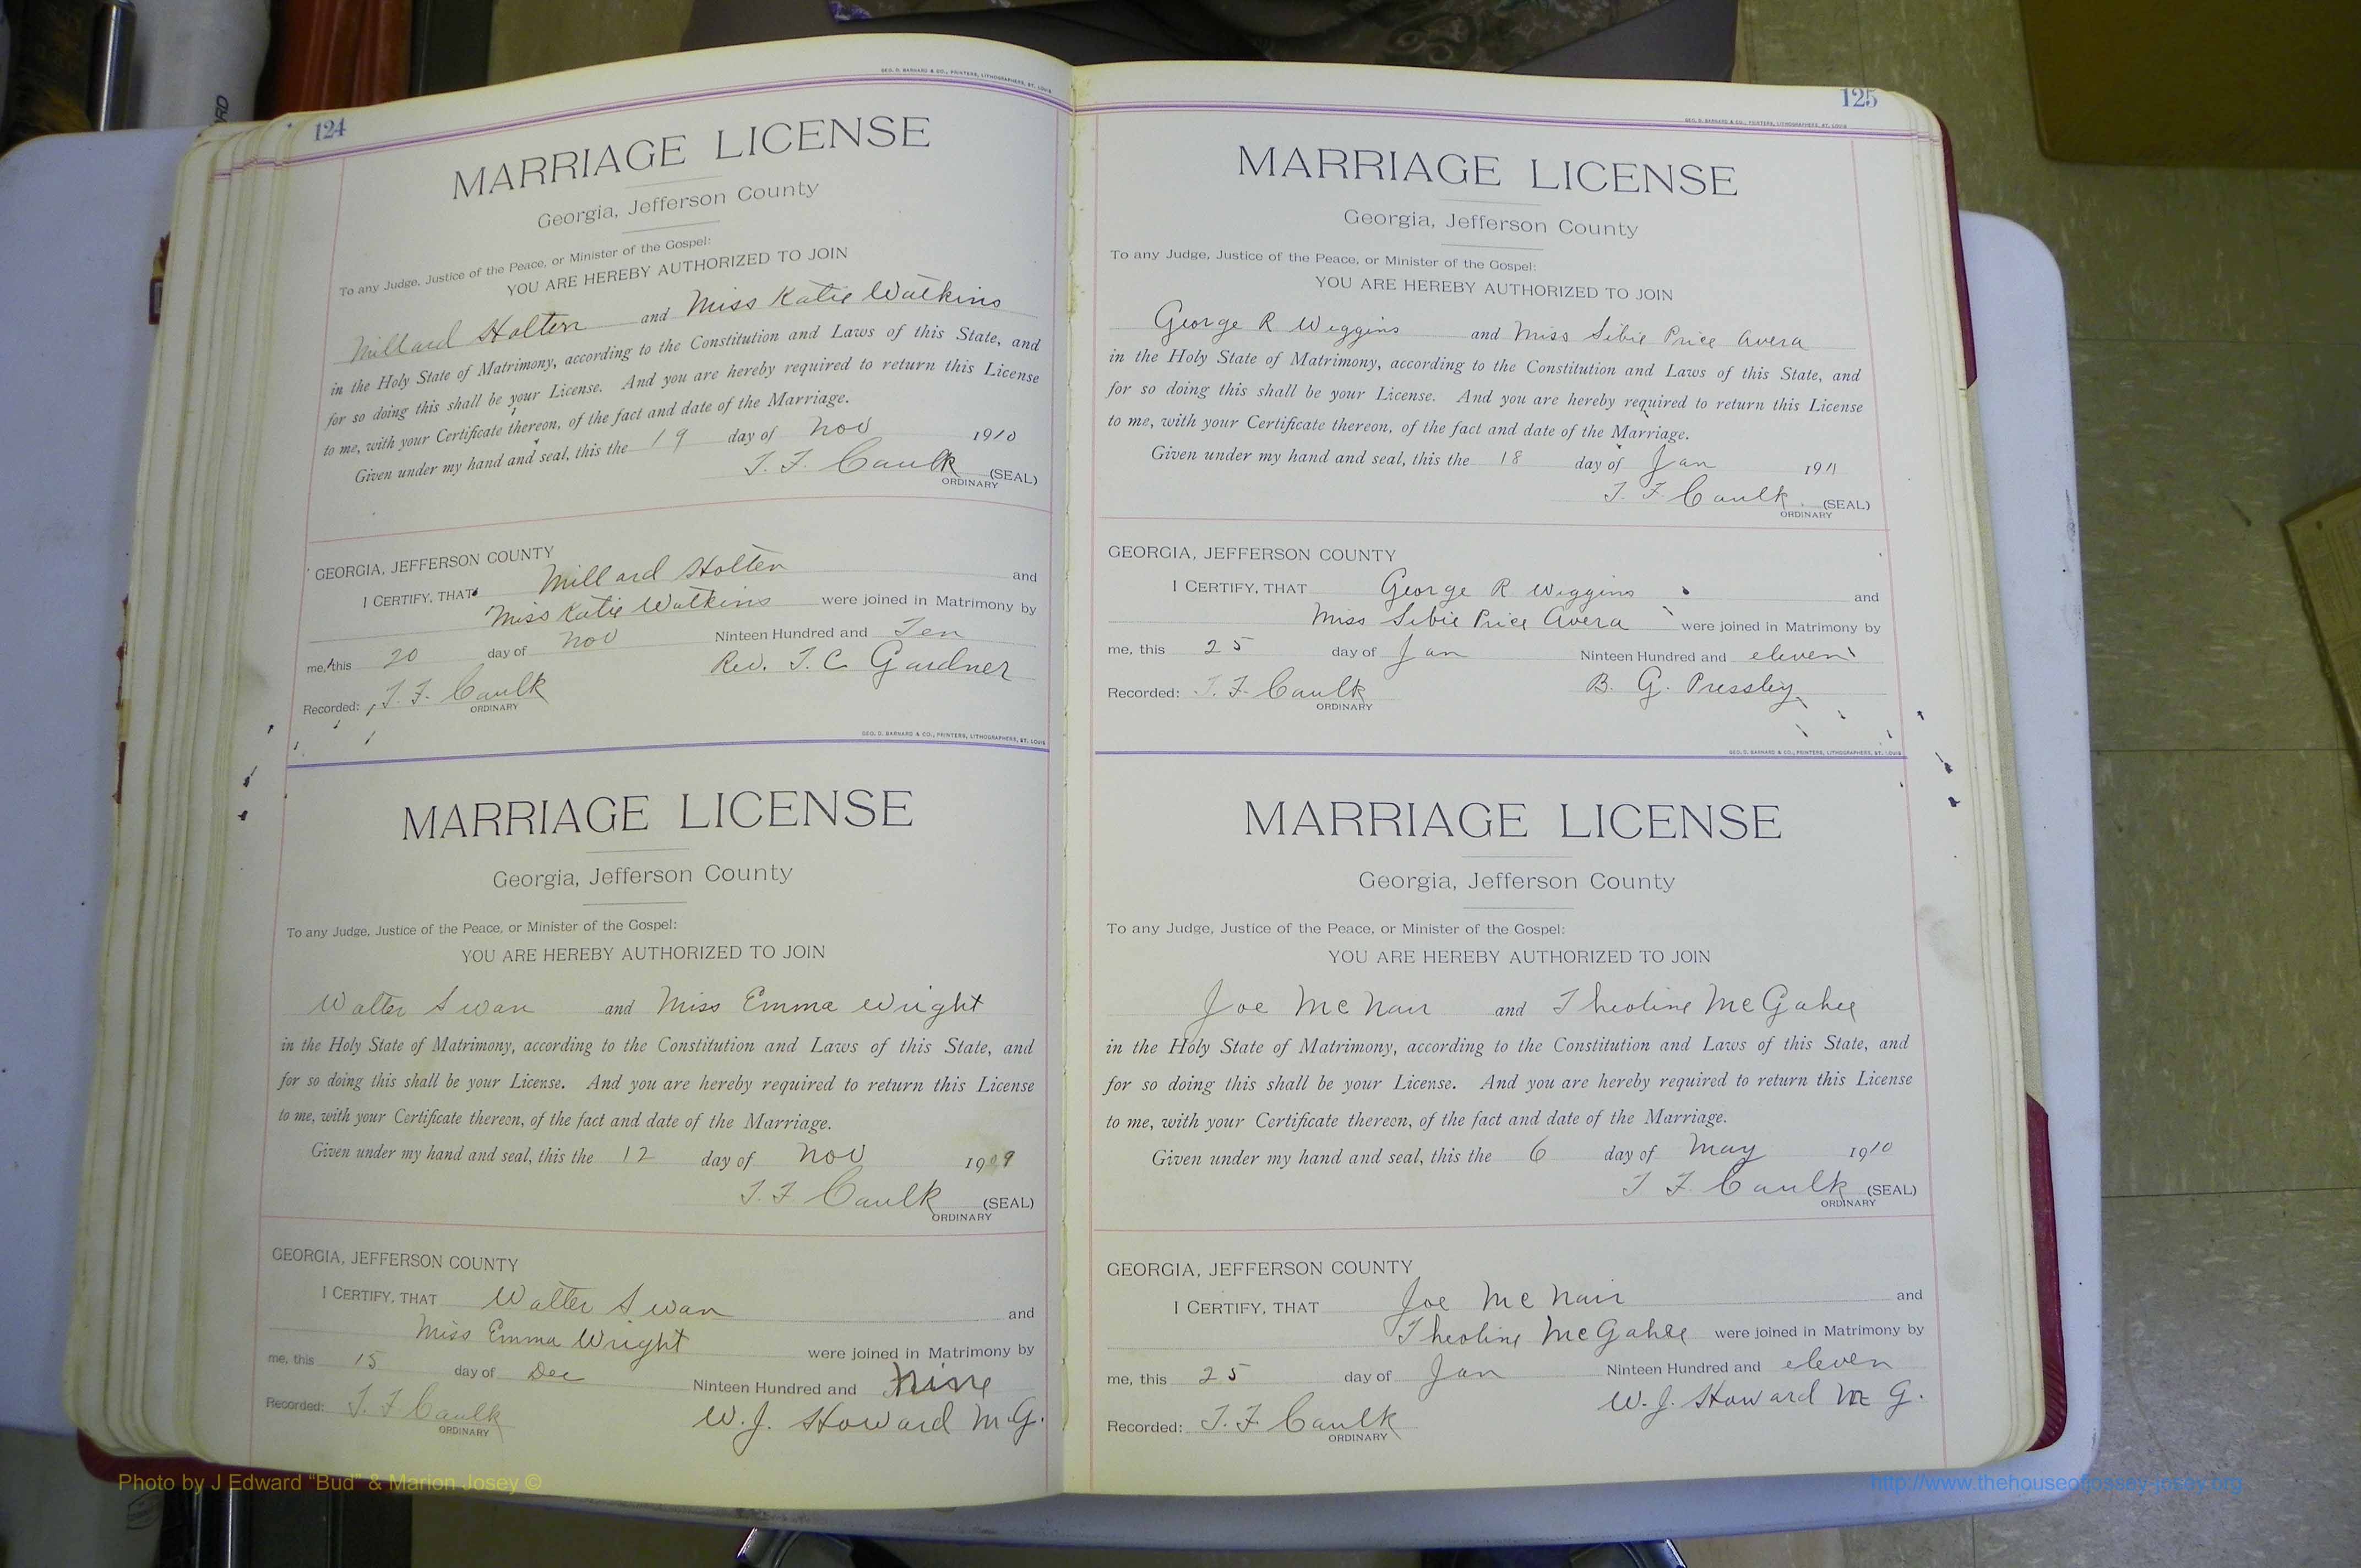 GEO. D. BARNARD & CO., PRINTERS, LITHOGRAPHERS, ST. LOUIS
124
MARRIAGE LICENSE
Georgia, Jefferson County
To any Judge, Justice of the Peace, or Minister of the Gospel:
YOU ARE HEREBY AUTHORIZED TO JOIN
Millard Holten and Miss Katie Watkins
in the Holy State of Matrimony, according to the Constitution and Laws of this State, and
for so doing this shall be your License. And you are hereby required to return this License
to me, with your Certificate thereon, of the fact and date of the Marriage.
Given under my hand and seal, this the 19 day of Nov 1910
T. F. Caulk (SEAL)
ORDINARY
GEORGIA, JEFFERSON COUNTY
I CERTIFY, THAT Millard Holten and
Miss Katie Watkins were joined in Matrimony by
me, this 20 day of Nov Ninteen Hundred and Ten
Rev. T. C. Gardner
Recorded: T. F. Caulk
ORDINARY
GEO. D. BARNARD & CO., PRINTERS, LITHOGRAPHERS, ST. LOUIS
MARRIAGE LICENSE
Georgia, Jefferson County
To any Judge, Justice of the Peace, or Minister of the Gospel:
YOU ARE HEREBY AUTHORIZED TO JOIN
Walter Swan and Miss Emma Wright
in the Holy State of Matrimony, according to the Constitution and Laws of this State, and
for so doing this shall be your License. And you are hereby required to return this License
to me, with your Certificate thereon, of the fact and date of the Marriage.
Given under my hand and seal, this the 12 day of Nov 1909
T. F. Caulk (SEAL)
ORDINARY
GEORGIA, JEFFERSON COUNTY
I CERTIFY, THAT Walter Swan and
Miss Emma Wright were joined in Matrimony by
me, this 15 day of Dec Ninteen Hundred and Nine
Recorded: T. F. Caulk W. J. Howard M. G.
ORDINARY
125
GEO. D. BARNARD & CO., PRINTERS, LITHOGRAPHERS, ST. LOUIS
MARRIAGE LICENSE
Georgia, Jefferson County
To any Judge, Justice of the Peace, or Minister of the Gospel:
YOU ARE HEREBY AUTHORIZED TO JOIN
George R Wiggins and Miss Sibie Price Avera
in the Holy State of Matrimony, according to the Constitution and Laws of this State, and
for so doing this shall be your License. And you are hereby required to return this License
to me, with your Certificate thereon, of the fact and date of the Marriage.
Given under my hand and seal, this the 18 day of Jan 1911
T. F. Caulk (SEAL)
ORDINARY
GEORGIA, JEFFERSON COUNTY
I CERTIFY, THAT George R Wiggins and
Miss Sibie Price Avera were joined in Matrimony by
me, this 25 day of Jan Ninteen Hundred and eleven
Recorded: T. F. Caulk B. G. Pressley
ORDINARY
GEO. D. BARNARD & CO., PRINTERS, LITHOGRAPHERS, ST. LOUIS
MARRIAGE LICENSE
Georgia, Jefferson County
To any Judge, Justice of the Peace, or Minister of the Gospel:
YOU ARE HEREBY AUTHORIZED TO JOIN
Joe McNair and Theoline McGahee
in the Holy State of Matrimony, according to the Constitution and Laws of this State, and
for so doing this shall be your License. And you are hereby required to return this License
to me, with your Certificate thereon, of the fact and date of the Marriage.
Given under my hand and seal, this the 6 day of May 1910
T. F. Caulk (SEAL)
ORDINARY
GEORGIA, JEFFERSON COUNTY
I CERTIFY, THAT Joe McNair and
Theoline McGahee were joined in Matrimony by
me, this 25 day of Jan Ninteen Hundred and eleven
W. J. Howard M G.
Recorded: T. F. Caulk
ORDINARY
Photo by J Edward "Bud" & Marion Josey ©
http://www.thehouseofjossey-josey.org